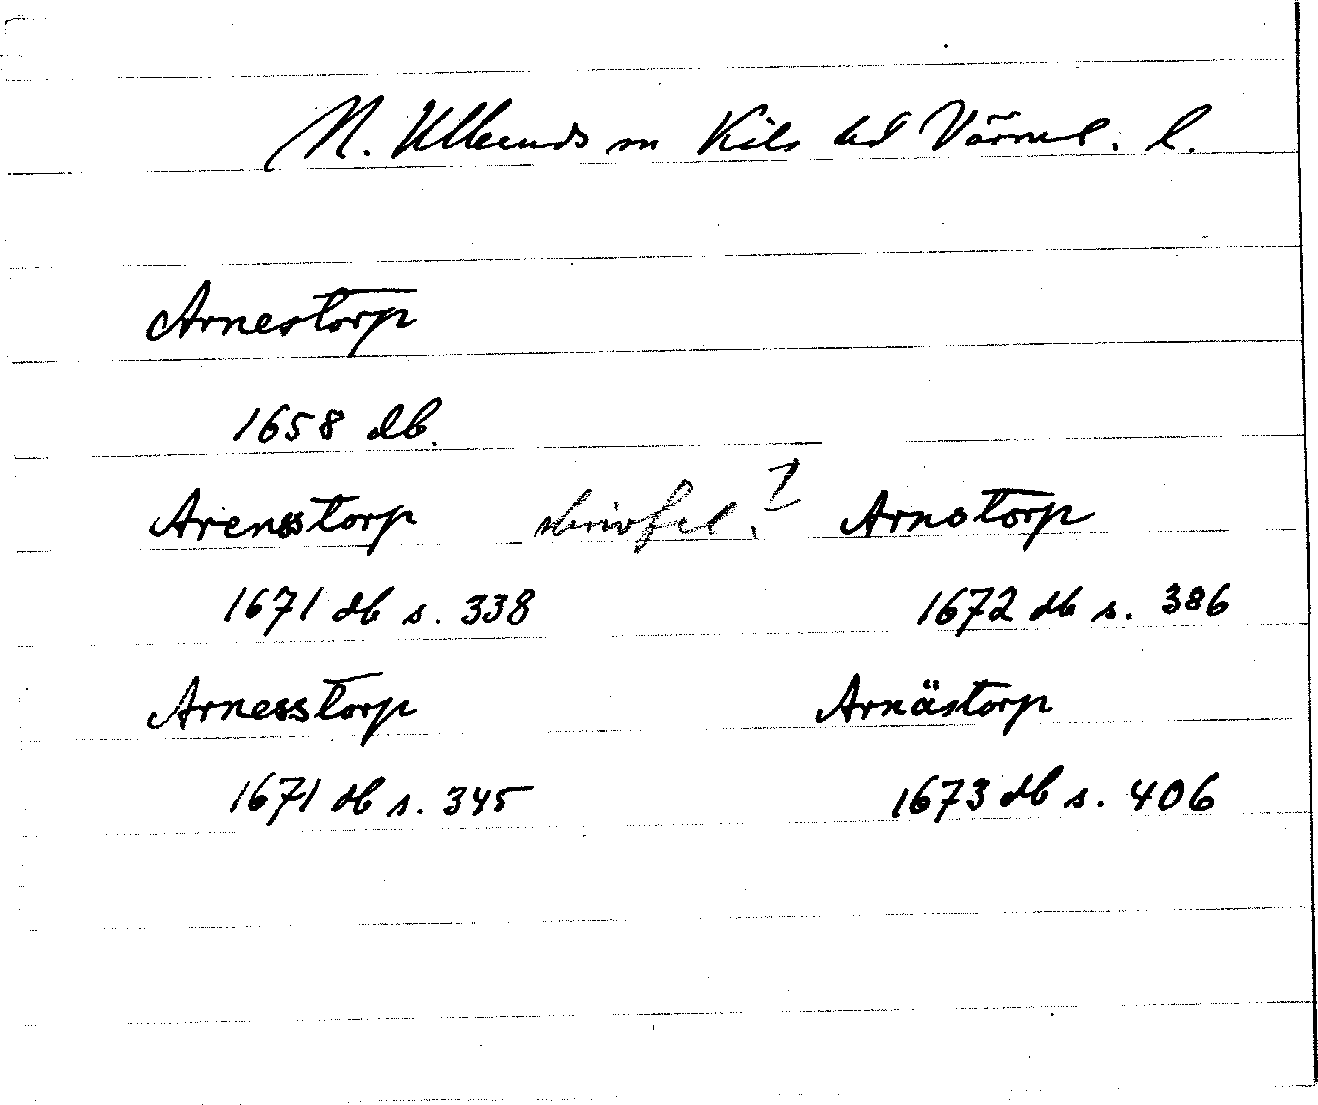 N. Ulleruds sn Kils hd Värml. l.
Arnestorp
1658 db.
Arensstorp skrivfel? Arnstorp
1671 db s. 338 1672 db s. 386
Arnesstorp Arnästorp
1671 db s. 345 1673 db s. 406